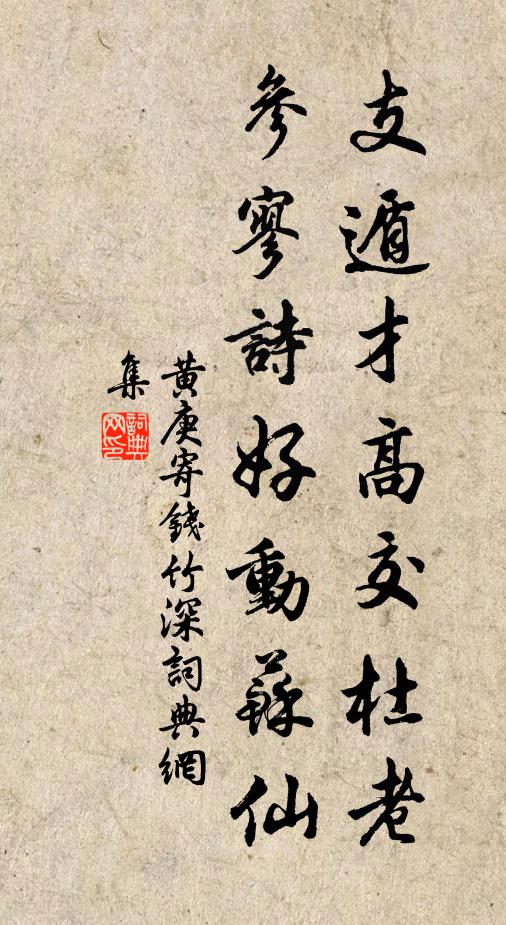 支遁才高交杜老
參寥詩好動蘇仙
黃庚寄錢竹深詞典網
集
詞典
网印